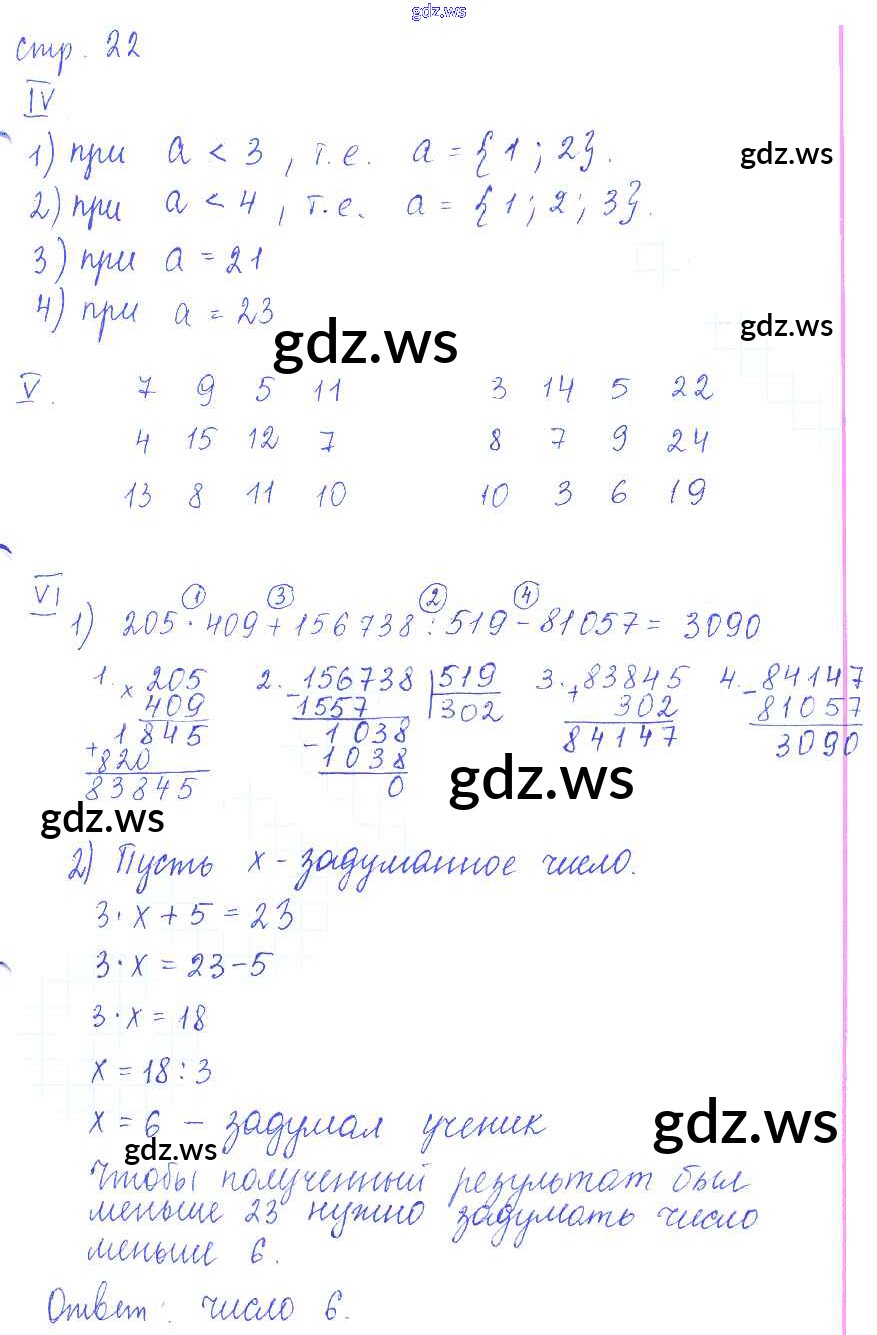 gdz.ws
стр. 22
IV
1) при a < 3, т.е. a = {1; 2}.
gdz.ws
2) при a < 4, т.е. a = {1; 2; 3}.
3) при a = 21
4) при a = 23
gdz.ws
gdz.ws
V. 7 9 5 11 3 14 5 22
4 15 12 7 8 7 9 24
13 8 11 10 10 3 6 19
VI 1 3 2 4
1) 205 · 409 + 156738 : 519 - 81057 = 3090
1. × 205 2. - 156738 519 3. + 83845 4. - 84147
409 1557 302 302 81057
1845 1038 84147 3090
+ 820 - 1038
83845 0
gdz.ws
gdz.ws
2) Пусть x - задуманное число.
3 · x + 5 = 23
3 · x = 23 - 5
3 · x = 18
x = 18 : 3
x = 6 - задумал ученик
gdz.ws
gdz.ws
Чтобы полученный результат был
меньше 23 нужно задумать число
меньше 6.
Ответ: число 6.